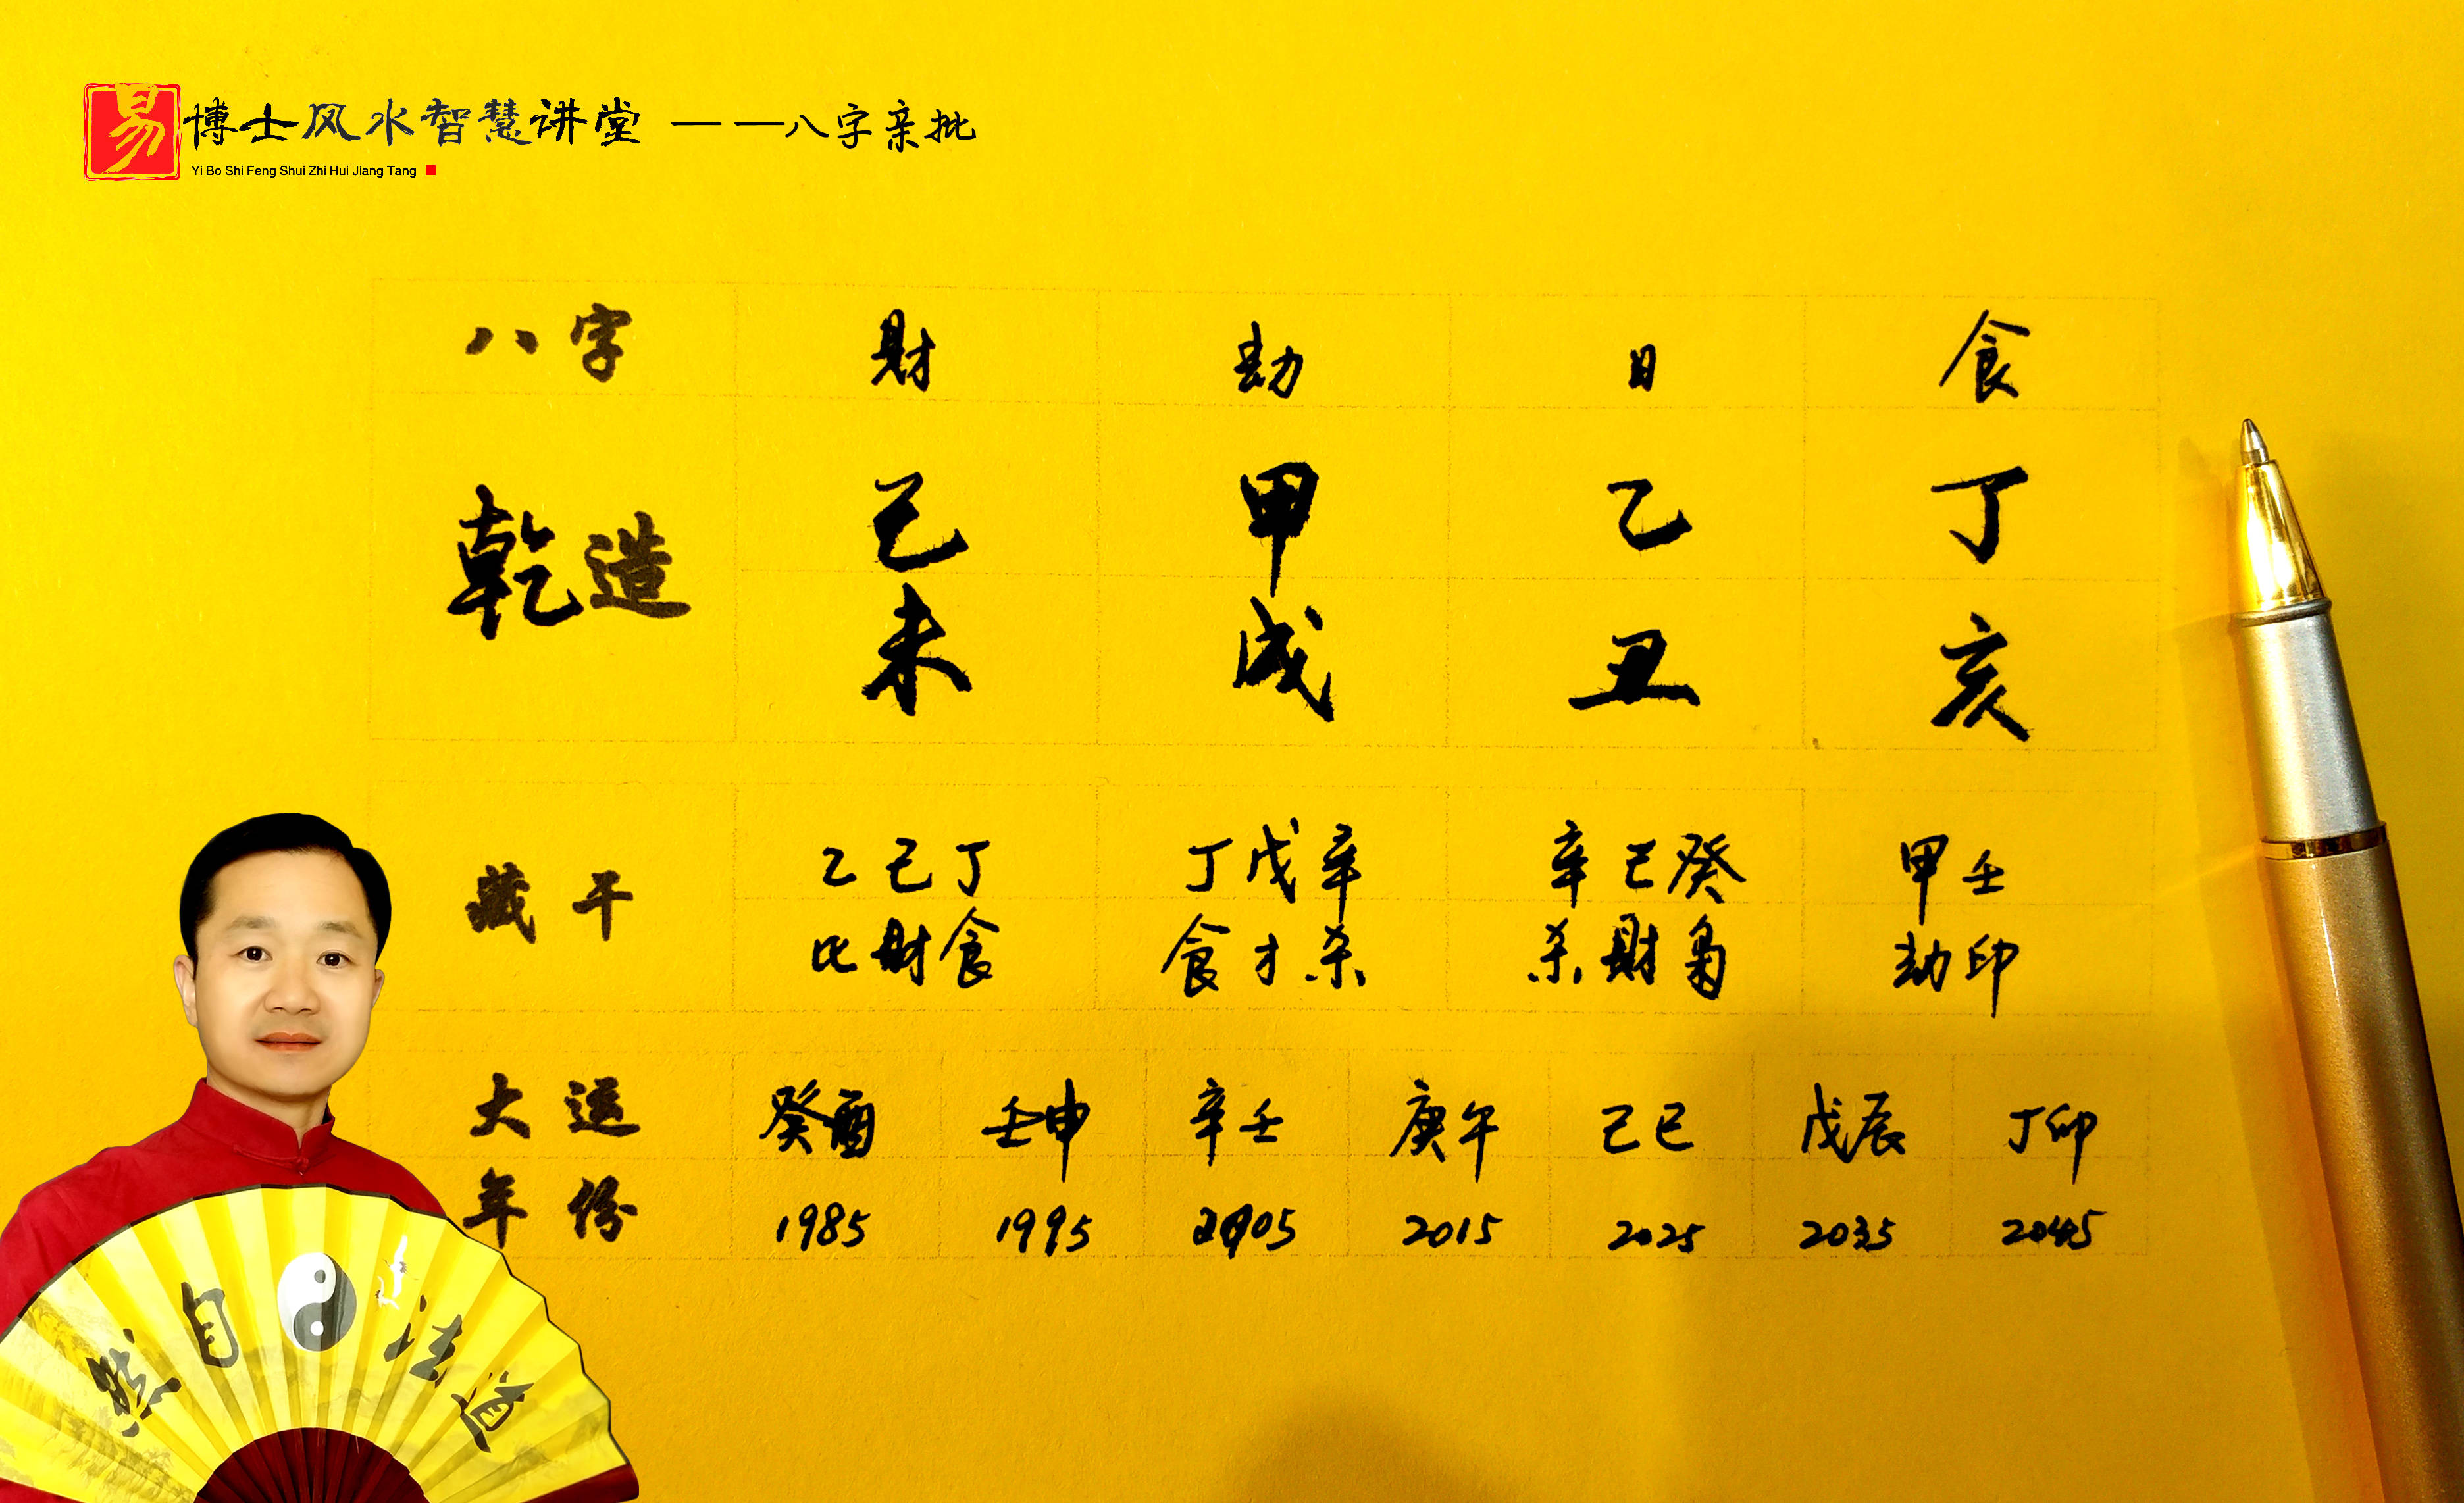 易博士风水智慧讲堂 ——八字亲批
Yi Bo Shi Feng Shui Zhi Hui Jiang Tang
八字 财 劫 日 食
乾造 己 甲 乙 丁
未 戌 丑 亥
藏干 乙己丁 丁戊辛 辛己癸 甲壬
比财食 食才杀 杀财枭 劫印
大运 癸酉 壬申 辛壬 庚午 己巳 戊辰 丁卯
年份 1985 1995 2005 2015 2025 2035 2045
然自法道